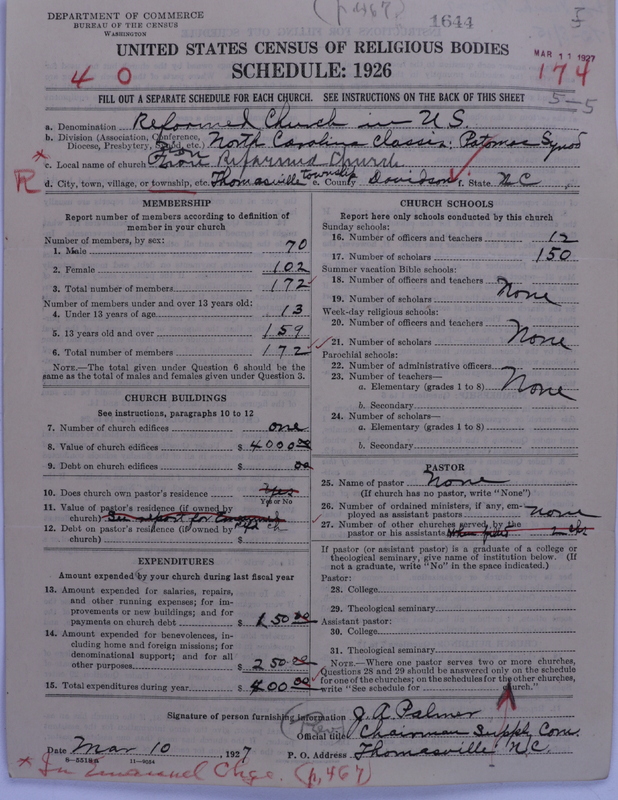 (p.467)
DEPARTMENT OF COMMERCE
BUREAU OF THE CENSUS
WASHINGTON
1644
UNITED STATES CENSUS OF RELIGIOUS BODIES
MAR 11 1927
SCHEDULE: 1926
4 0
174
FILL OUT A SEPARATE SCHEDULE FOR EACH CHURCH. SEE INSTRUCTIONS ON THE BACK OF THIS SHEET
5-5
a. Denomination Reformed Church in U.S.
b. Division (Association, Conference, Diocese, Presbytery, Synod, etc.) North Carolina Classis, Potomac Synod
* c. Local name of church Reformed Church
R d. City, town, village, or township, etc. Thomasville township e. County Davidson f. State N.C
MEMBERSHIP
Report number of members according to definition of member in your church
Number of members, by sex:
1. Male 70
2. Female 102
3. Total number of members 172
Number of members under and over 13 years old:
4. Under 13 years of age 13
5. 13 years old and over 159
6. Total number of members 172
NOTE.—The total given under Question 6 should be the same as the total of males and females given under Question 3.
CHURCH BUILDINGS
See instructions, paragraphs 10 to 12
7. Number of church edifices one
8. Value of church edifices $ 4000 00
9. Debt on church edifices $ 00
10. Does church own pastor's residence Yes
Yes or No
11. Value of pastor's residence (if owned by church) See report for
12. Debt on pastor's residence (if owned by church) $
EXPENDITURES
Amount expended by your church during last fiscal year
13. Amount expended for salaries, repairs, and other running expenses; for improvements or new buildings; and for payments on church debt $ 150 00
14. Amount expended for benevolences, including home and foreign missions; for denominational support; and for all other purposes $ 250 00
15. Total expenditures during year $ 400 00
CHURCH SCHOOLS
Report here only schools conducted by this church
Sunday schools:
16. Number of officers and teachers 12
17. Number of scholars 150
Summer vacation Bible schools:
18. Number of officers and teachers
19. Number of scholars None
Week-day religious schools:
20. Number of officers and teachers
21. Number of scholars None
Parochial schools:
22. Number of administrative officers
23. Number of teachers—
a. Elementary (grades 1 to 8) None
b. Secondary
24. Number of scholars—
a. Elementary (grades 1 to 8)
b. Secondary
PASTOR
25. Name of pastor None
(If church has no pastor, write "None")
26. Number of ordained ministers, if any, employed as assistant pastors None
27. Number of other churches served by the pastor or his assistants
If pastor (or assistant pastor) is a graduate of a college or theological seminary, give name of institution below. (If not a graduate, write "No" in the space indicated.)
Pastor:
28. College
29. Theological seminary
Assistant pastor:
30. College
31. Theological seminary
NOTE.—Where one pastor serves two or more churches, Questions 28 and 29 should be answered only on the schedule for one of the churches; on the schedules for the other churches, write "See schedule for church."
Signature of person furnishing information J. A. Palmer
(Rev)
Official title Chairman Supply Com.
Date Mar 10, 1927
P. O. Address Thomasville N.C.
8-5519a 11-9034
* In Emanuel Chge. (p.467)